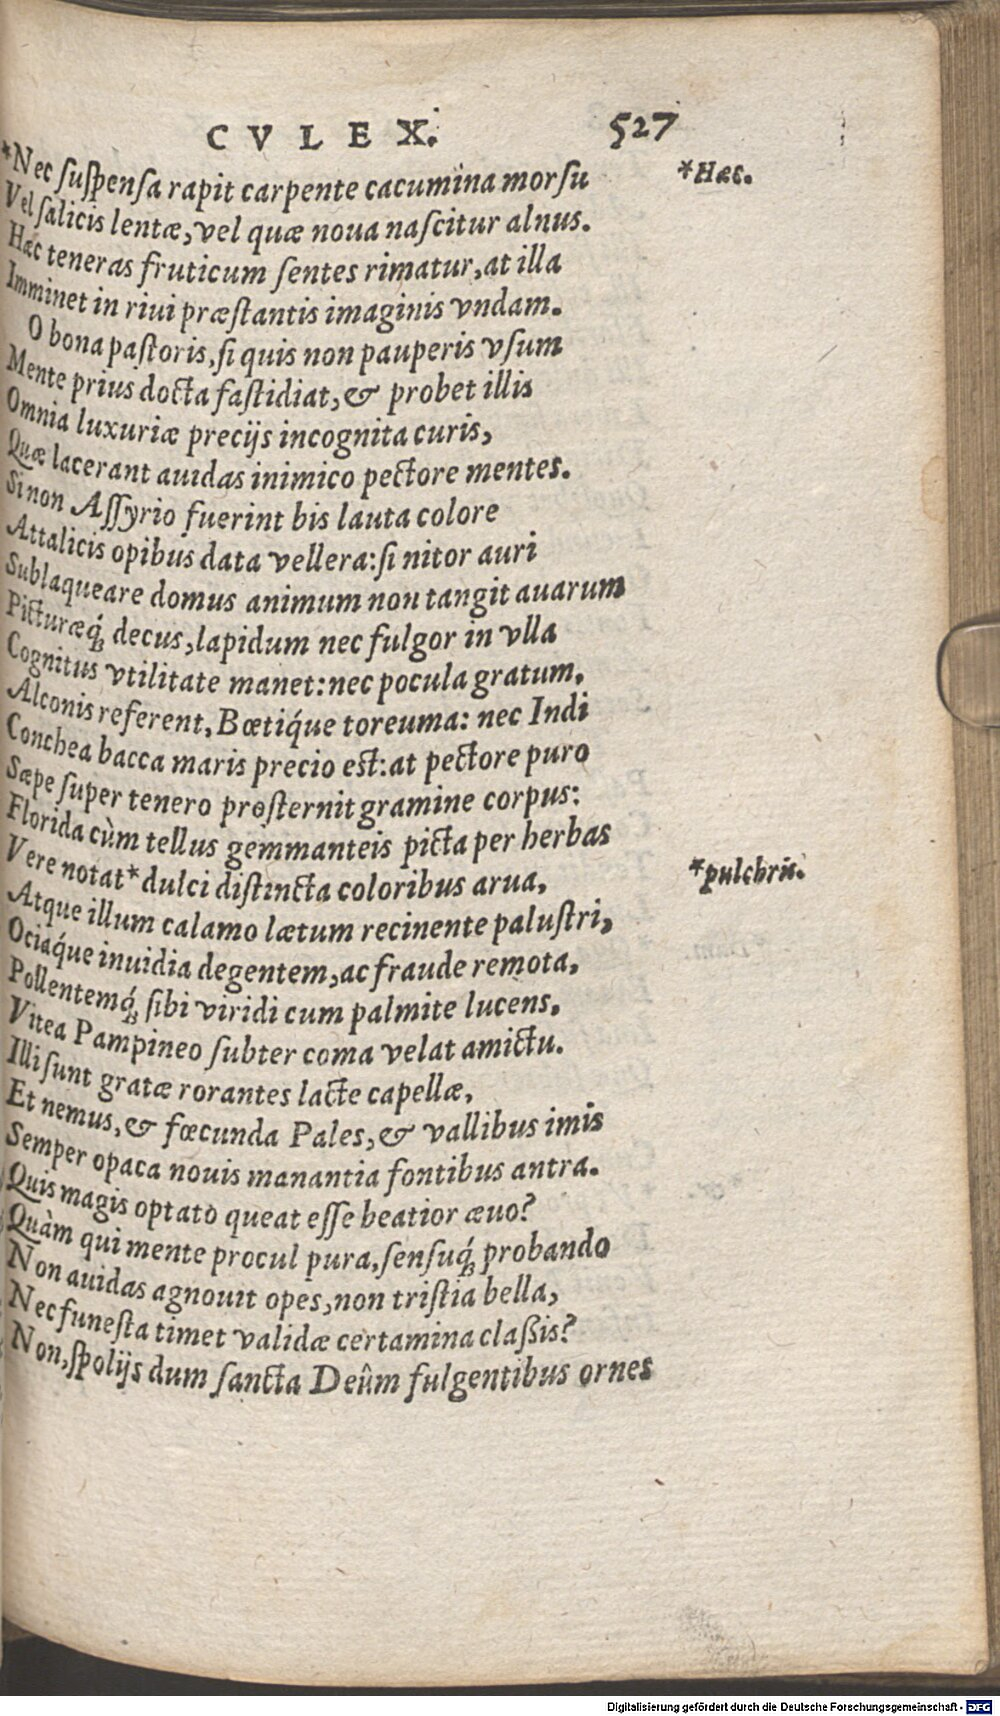 CVLEX. 527
*Nec ſuſpenſa rapit carpente cacumina morſu *Hæc.
Vel ſalicis lentæ, vel quæ noua naſcitur alnus.
Hæc teneras fruticum ſentes rimatur, at illa
Imminet in riui præſtantis imaginis vndam.
O bona paſtoris, ſi quis non pauperis vſum
Mente prius docta faſtidiat, & probet illis
Omnia luxuriæ precijs incognita curis,
Quæ lacerant auidas inimico pectore mentes.
Si non Aſſyrio fuerint bis lauta colore
Attalicis opibus data vellera: ſi nitor auri
Sublaqueare domus animum non tangit auarum
Picturæq́; decus, lapidum nec fulgor in vlla
Cognitus vtilitate manet: nec pocula gratum.
Alconis referent, Bœtiq́ue toreuma: nec Indi
Conchea bacca maris precio est: at pectore puro
Sæpe ſuper tenero proſternit gramine corpus:
Florida cùm tellus gemmanteis picta per herbas
Vere notat* dulci diſtincta coloribus arua, *pulchris.
Atque illum calamo lætum recinente paluſtri,
Ociaq́ue inuidia degentem, ac fraude remota,
Pollentemq́; ſibi viridi cum palmite lucens.
Vitea Pampineo ſubter coma velat amictu.
Illi ſunt gratæ rorantes lacte capellæ,
Et nemus, & fœcunda Pales, & vallibus imis
Semper opaca nouis manantia fontibus antra.
Quis magis optato queat eſſe beatior æuo?
Quàm qui mente procul pura, ſenſuq́; probando
Non auidas agnouit opes, non triſtia bella,
Nec funeſta timet validæ certamina claßis?
Non, ſpolijs dum ſancta Deûm fulgentibus ornes
Digitalisierung gefördert durch die Deutsche Forschungsgemeinschaft - DFG